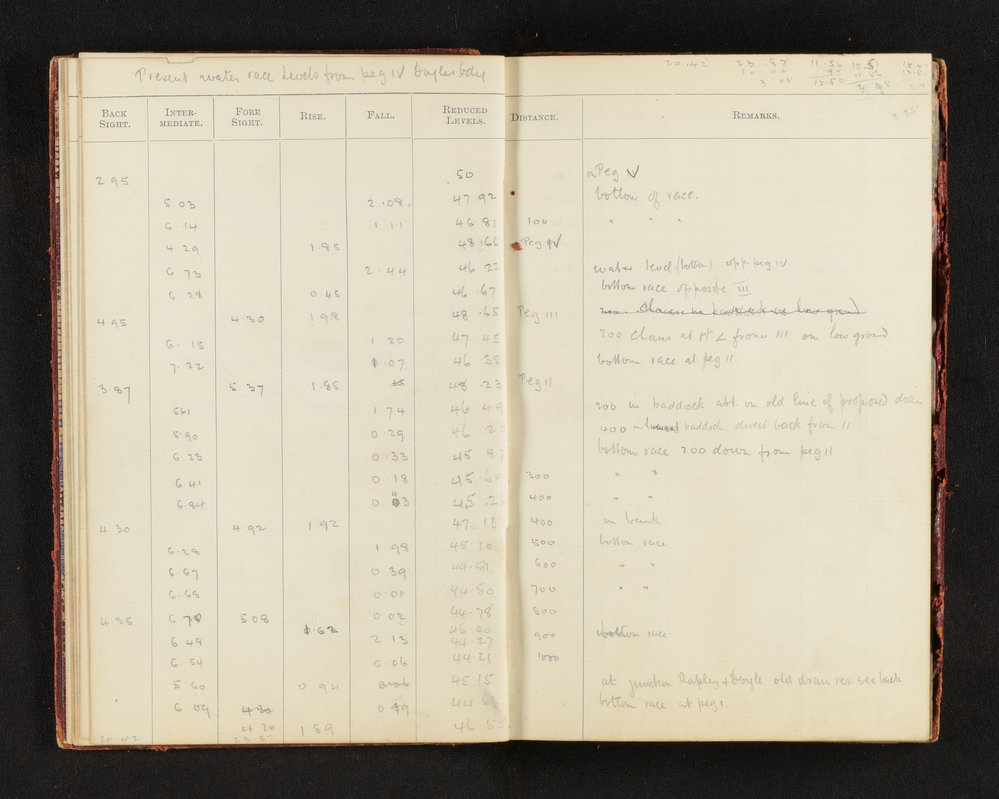 Present water race Levels from peg IV Doyles bdy
20.42 23.87 11.50 15.51
BACK SIGHT. INTER-MEDIATE. FORE SIGHT. RISE. FALL. REDUCED LEVELS. DISTANCE. REMARKS.
2.95 50 on Peg IV
5.03 2.08 47.92 bottom of race.
6.14 1.11 46.81 100 " " "
4.29 1.85 48.66 Peg IV
6.73 2.44 46.22 water level (bottom) opp. peg IV
6.28 0.45 46.67 bottom race opposite III
4.95 4.30 1.98 48.65 Peg III
6.15 1.20 47.45 200 Chains at rt ∠ from III on low ground
7.22 1.07 46.38 bottom race at peg II
3.87 5.37 1.85 48.23 Peg II
5.61 1.74 46.49 200 in paddock abt. on old line of proposed drain
5.90 0.29 46.20 400 in paddock direct back from II
6.23 0.33 45.87 bottom race 200 down from peg II
6.41 0.18 45.69 300 " "
6.84 0.43 45.26 400 " "
4.30 4.92 1.92 47.18 400 in bank
6.28 1.98 45.20 500 bottom race
6.67 0.39 44.81 600 " "
6.68 0.01 44.80 700 " "
4.35 6.70 5.08 0.02 44.78 800
1.62 46.40
6.48 2.13 44.27 900 bottom race
6.54 0.06 44.21 1000
5.60 0.94 45.15 at junction Rapley + Doyle old drain res. see back
6.09 4.20 0.49 44.6 bottom race at peg I.
4.20 1.89 46.55
20.42 23.87